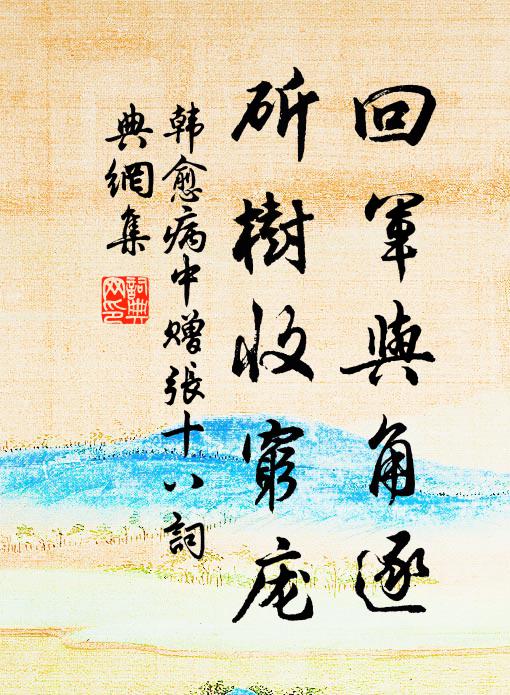 回軍與角逐
斫樹收窮庬
韓愈病中赠張十八詞
典網集
詞典
网印